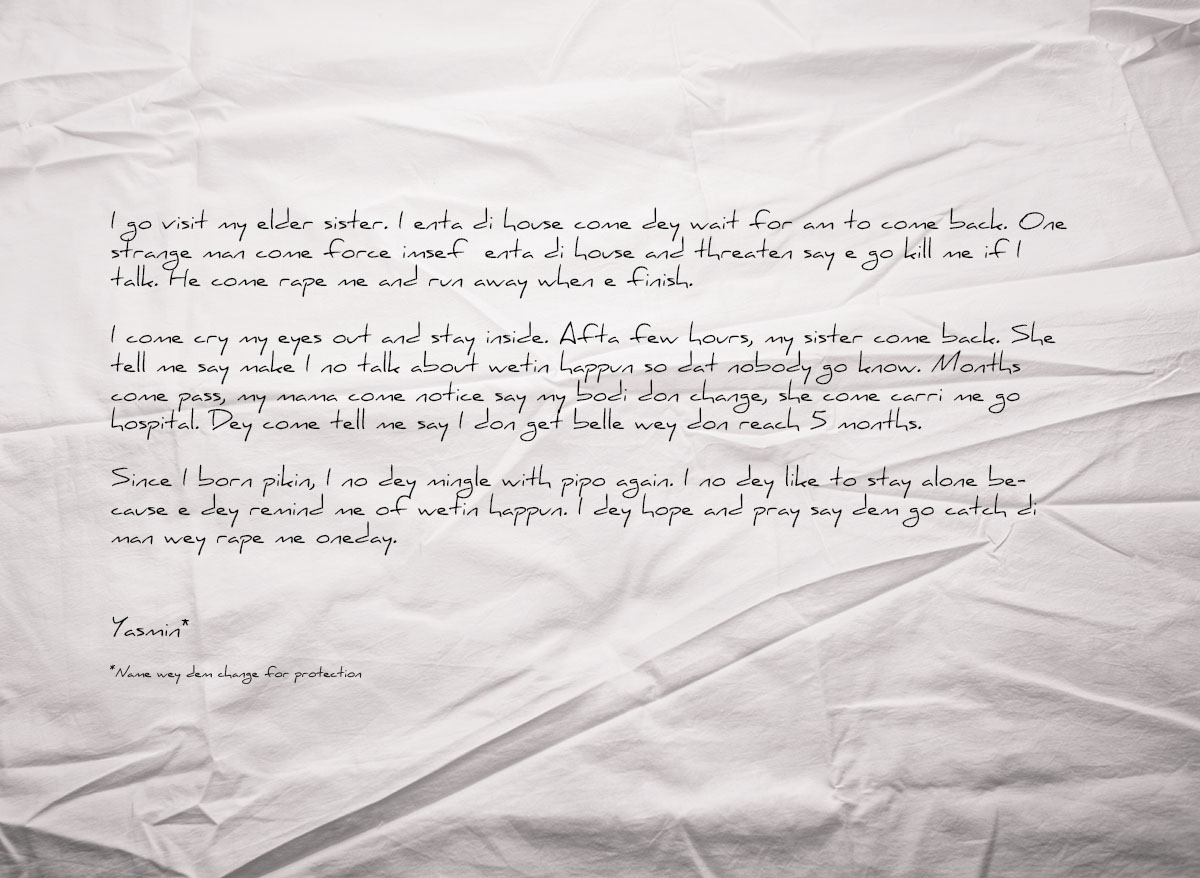 I go visit my elder sister. I enta di house come dey wait for am to come back. One
strange man come force imsef enta di house and threaten say e go kill me if I
talk. He come rape me and run away when e finish.
I come cry my eyes out and stay inside. Afta few hours, my sister come back. She
tell me say make I no talk about wetin happun so dat nobody go know. Months
come pass, my mama come notice say my bodi don change, she come carri me go
hospital. Dey come tell me say I don get belle wey don reach 5 months.
Since I born pikin, I no dey mingle with pipo again. I no dey like to stay alone be-
cause e dey remind me of wetin happun. I dey hope and pray say dem go catch di
man wey rape me oneday.
Yasmin*
*Name wey dem change for protection